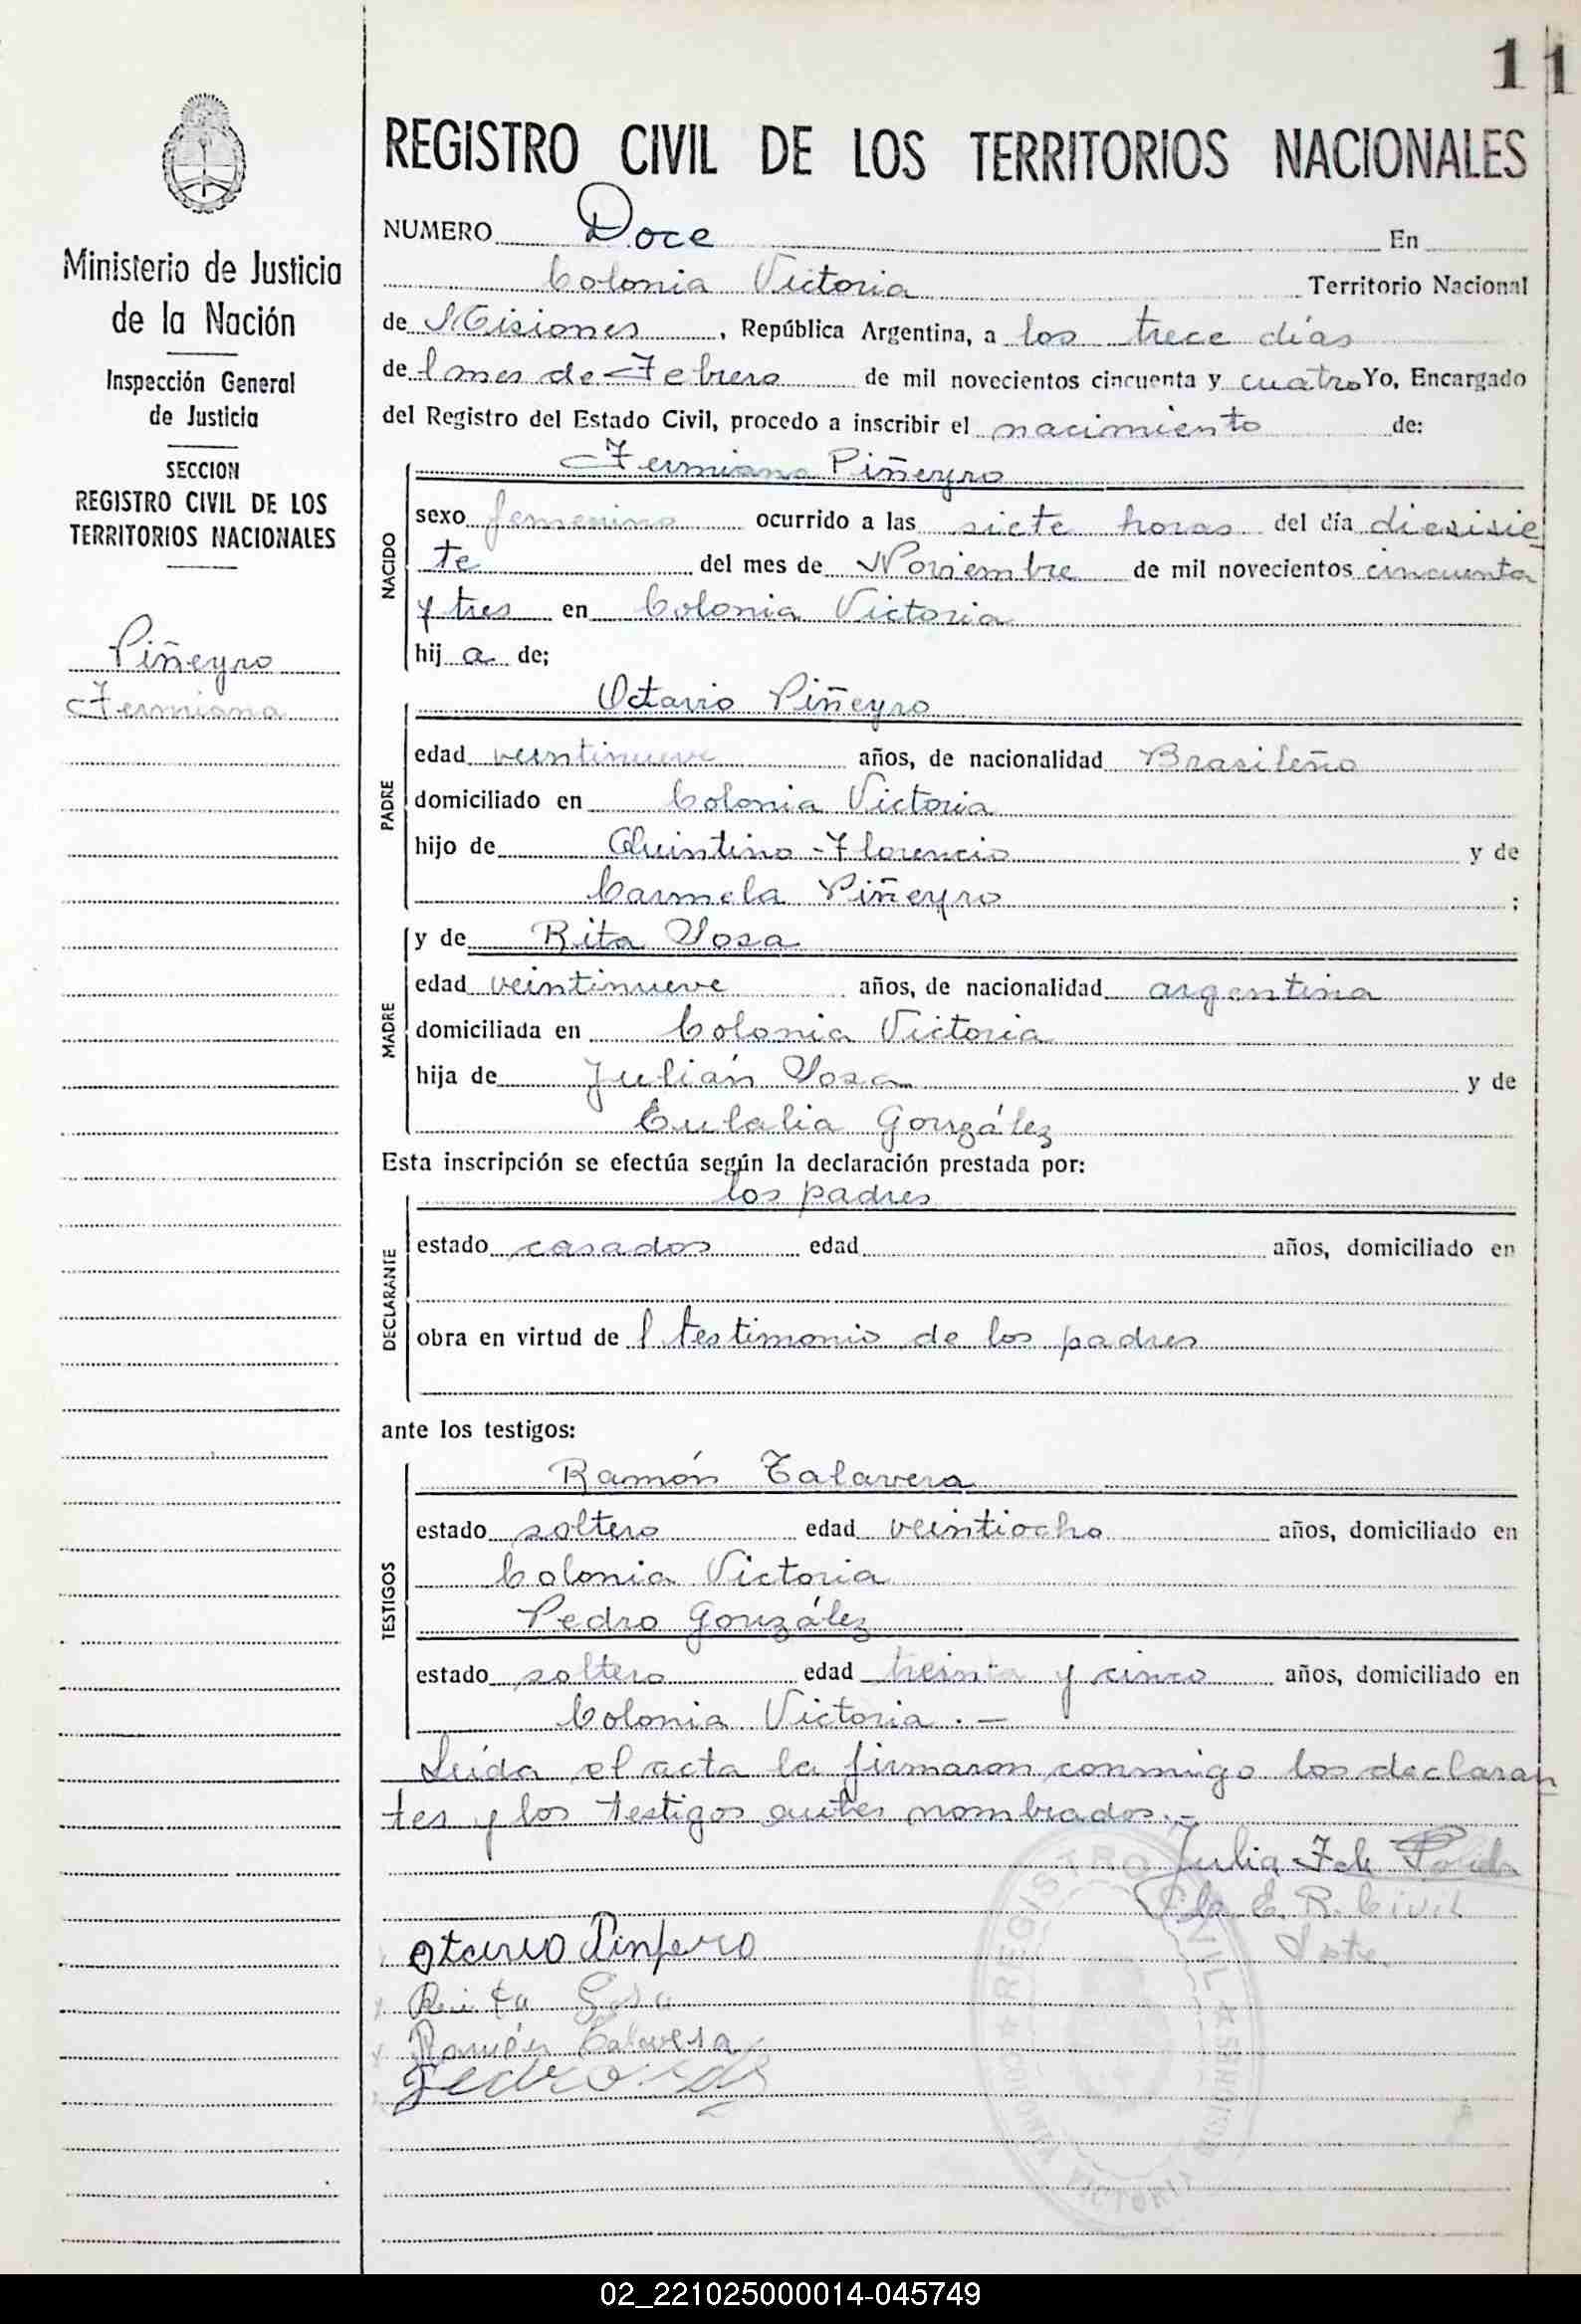 11
REGISTRO CIVIL DE LOS TERRITORIOS NACIONALES
Ministerio de Justicia
de la Nación
Inspección General
de Justicia
SECCION
REGISTRO CIVIL DE LOS
TERRITORIOS NACIONALES
Piñeyro
Fermiana
NUMERO Doce En
Colonia Victoria Territorio Nacional
de Misiones, República Argentina, a los trece días
del mes de Febrero de mil novecientos cincuenta y cuatro Yo, Encargado
del Registro del Estado Civil, procedo a inscribir el nacimiento de:
Fermiana Piñeyro
NACIDO
sexo femenino ocurrido a las siete horas del día diesisie-
te del mes de Noviembre de mil novecientos cincuenta
y tres en Colonia Victoria
hij a de;
Octavio Piñeyro
PADRE
edad veintinueve años, de nacionalidad Brasileño
domiciliado en Colonia Victoria
hijo de Quintino Florencio y de
Carmela Piñeyro ;
y de Rita Sosa
MADRE
edad veintinueve años, de nacionalidad argentina
domiciliada en Colonia Victoria
hija de Julián Sosa y de
Eulalia González
Esta inscripción se efectúa según la declaración prestada por:
los padres
DECLARANTE
estado casados edad años, domiciliado en
obra en virtud del testimonio de los padres
ante los testigos:
Ramón Talavera
TESTIGOS
estado soltero edad veintiocho años, domiciliado en
Colonia Victoria
Pedro González
estado soltero edad treinta y cinco años, domiciliado en
Colonia Victoria.—
Leída el acta la firmaron conmigo los declaran
tes y los testigos antes nombrados.-
Julia
E. R. Civil
Ramón Talavera
Pedro
REGISTRO CIVIL ★ MISIONES
COLONIA VICTORIA
02_221025000014-045749